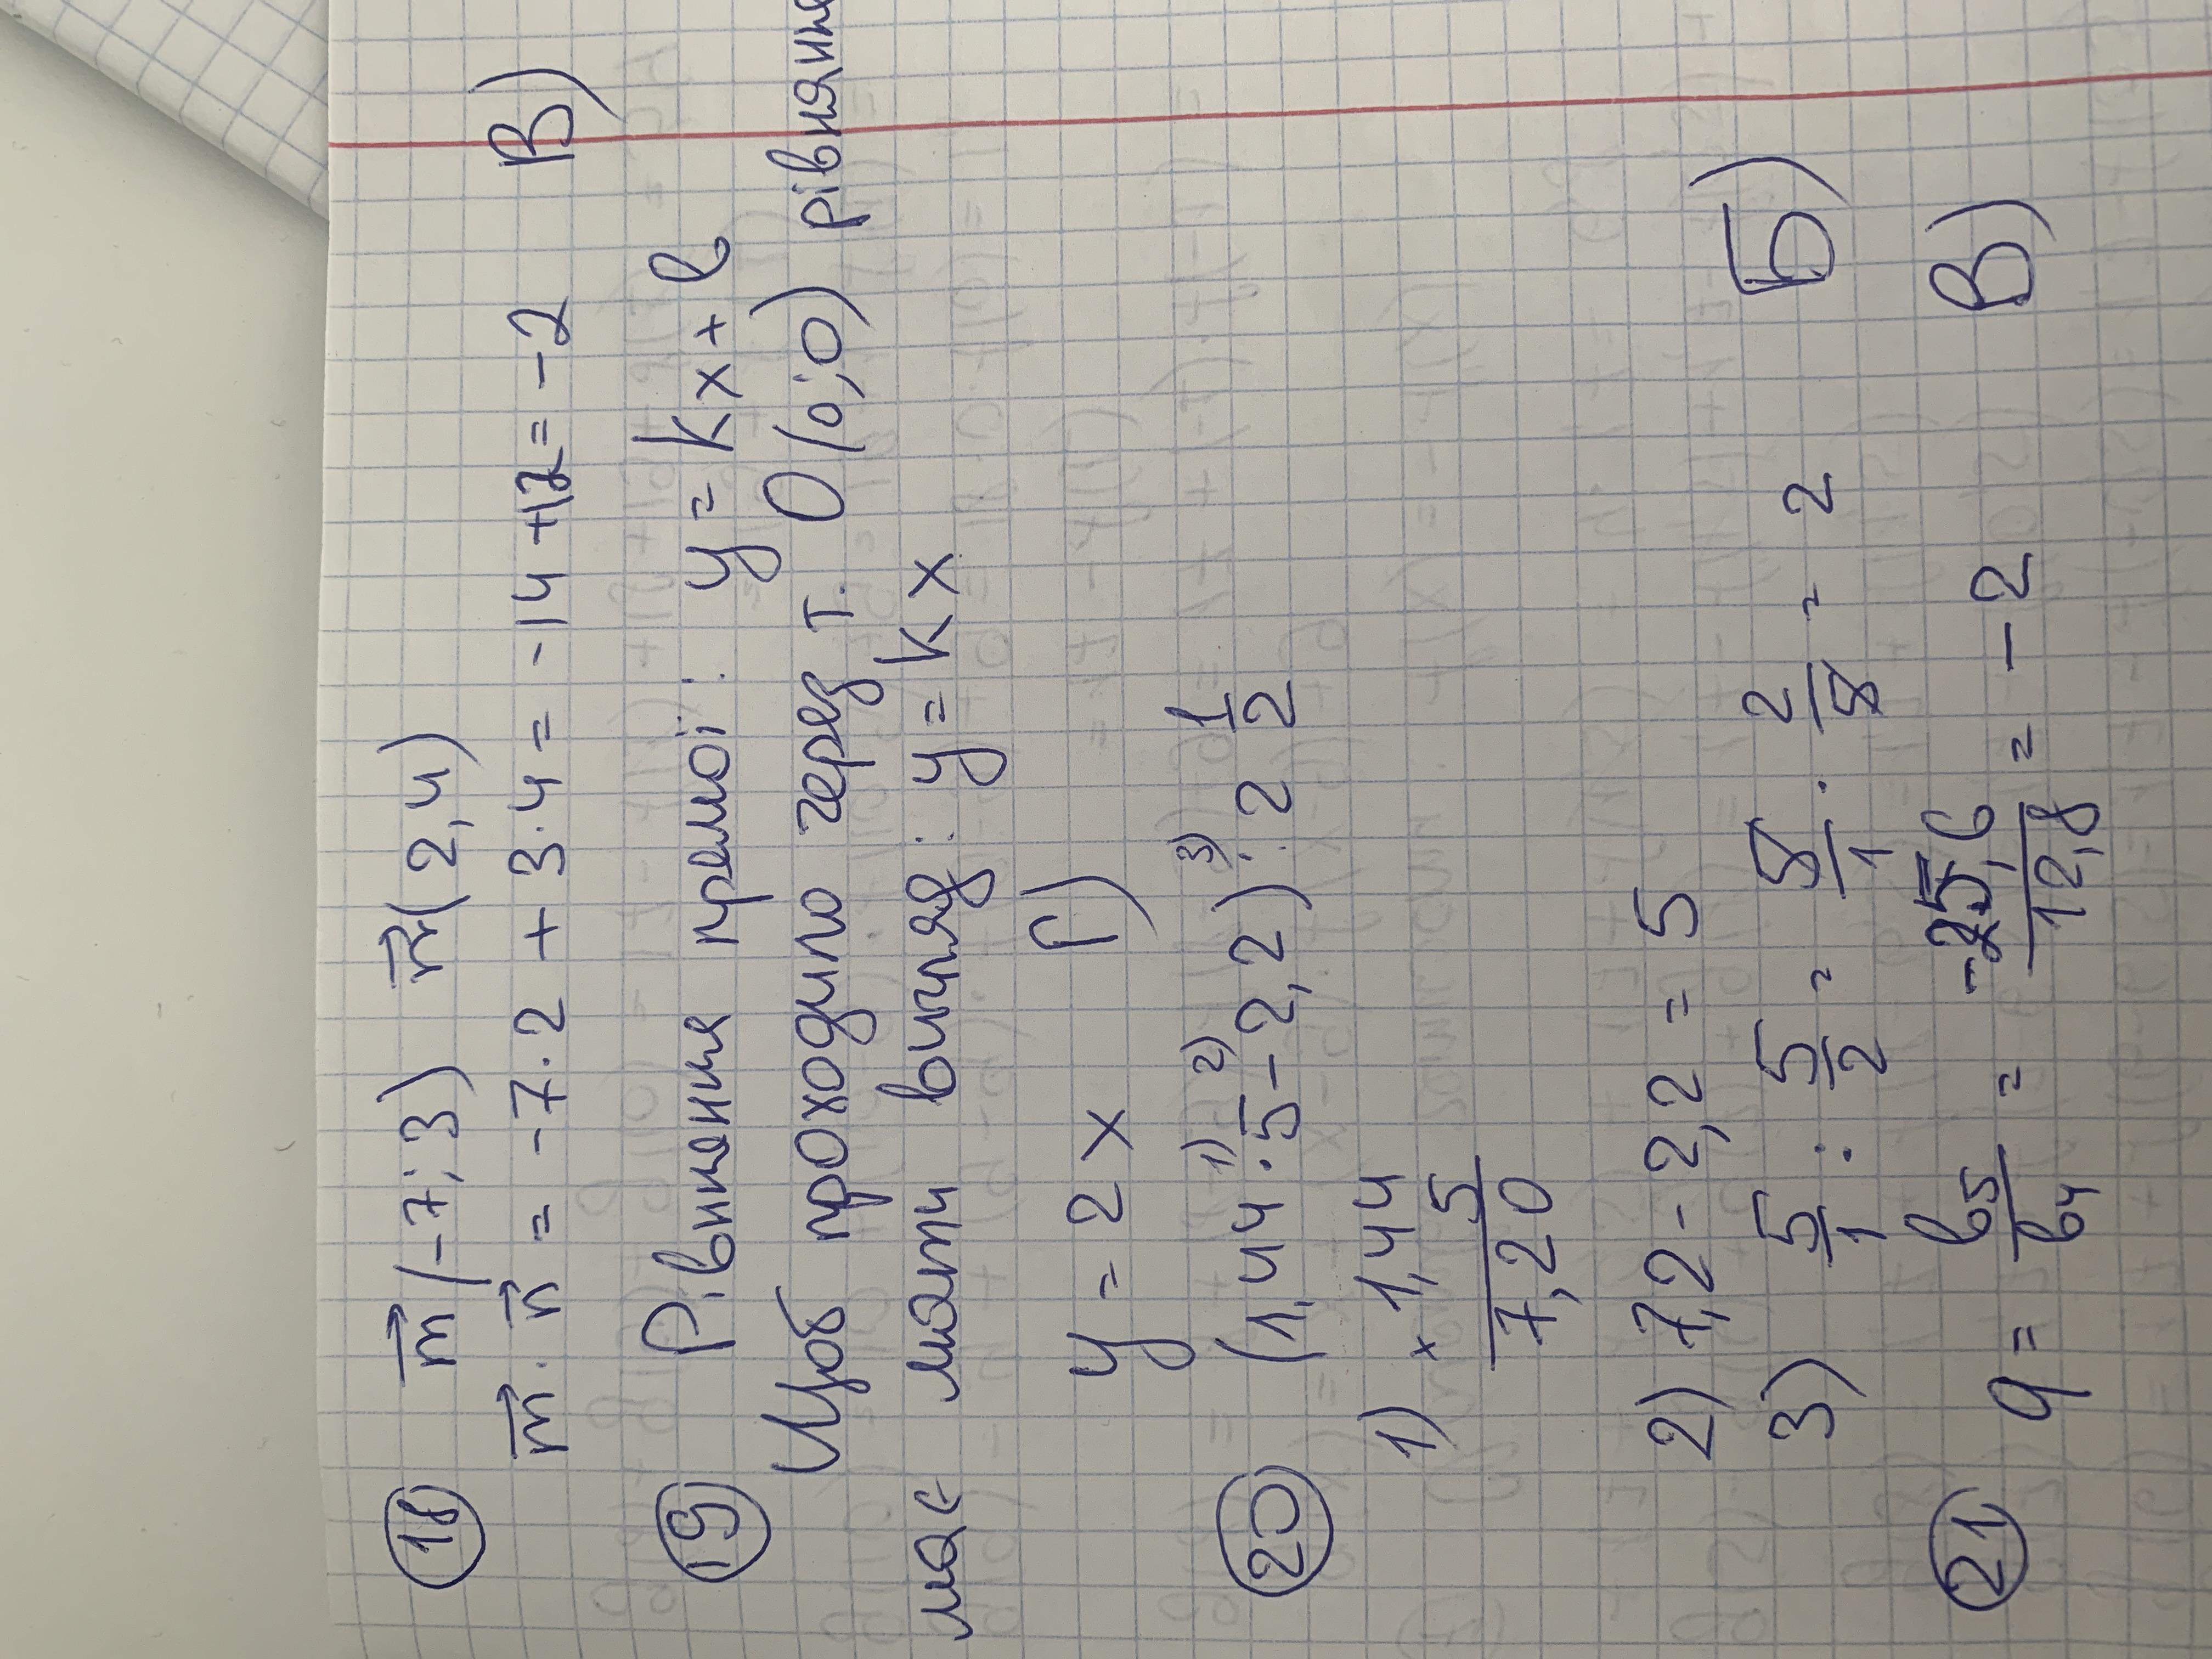 18 m⃗(-7; 3) n⃗(2, 4)
m⃗ · n⃗ = -7·2 + 3·4 = -14 + 12 = -2 В)
19 Рівняння прямої: y = kx + b
Щоб проходило через т. O(0; 0) рівняння
має мати вигляд: y = kx
y = 2x Г)
20 (1,44 ·¹⁾ 5 -²⁾ 2,2) :³⁾ 2 1/2
1) × 1,44
5
7,20
2) 7,2 - 2,2 = 5
3) 5/1 : 5/2 = 5/1 · 2/5 = 2 Б)
21 q = b5/b4 = -25,6/12,8 = -2 В)